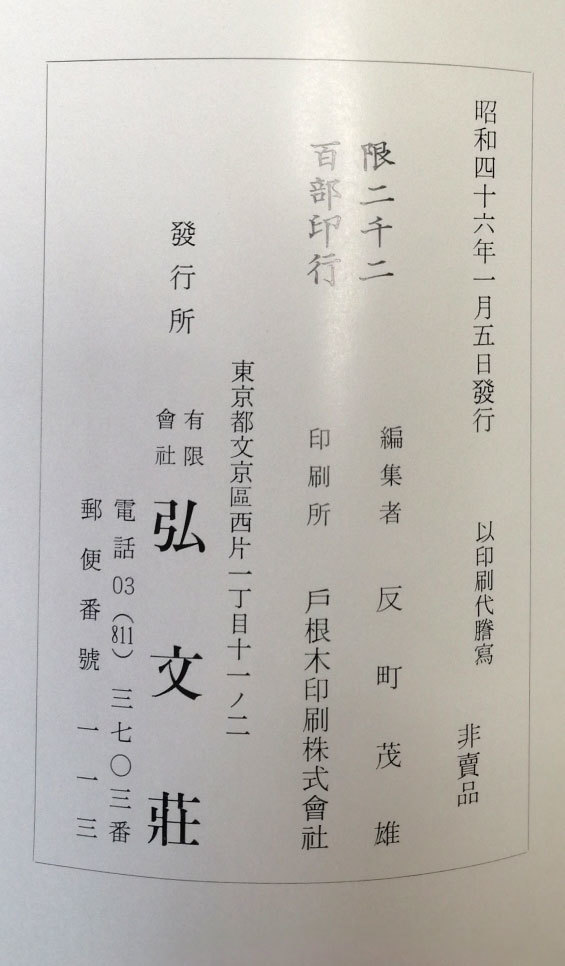 昭和四十六年一月五日發行
以印刷代謄寫
非賣品
限二千二
百部印行
編集者 反町茂雄
印刷所 戶根木印刷株式會社
東京都文京區西片一丁目十一ノ二
發行所 有限會社 弘文莊
電話03(811)三七〇三番
郵便番號 一一三